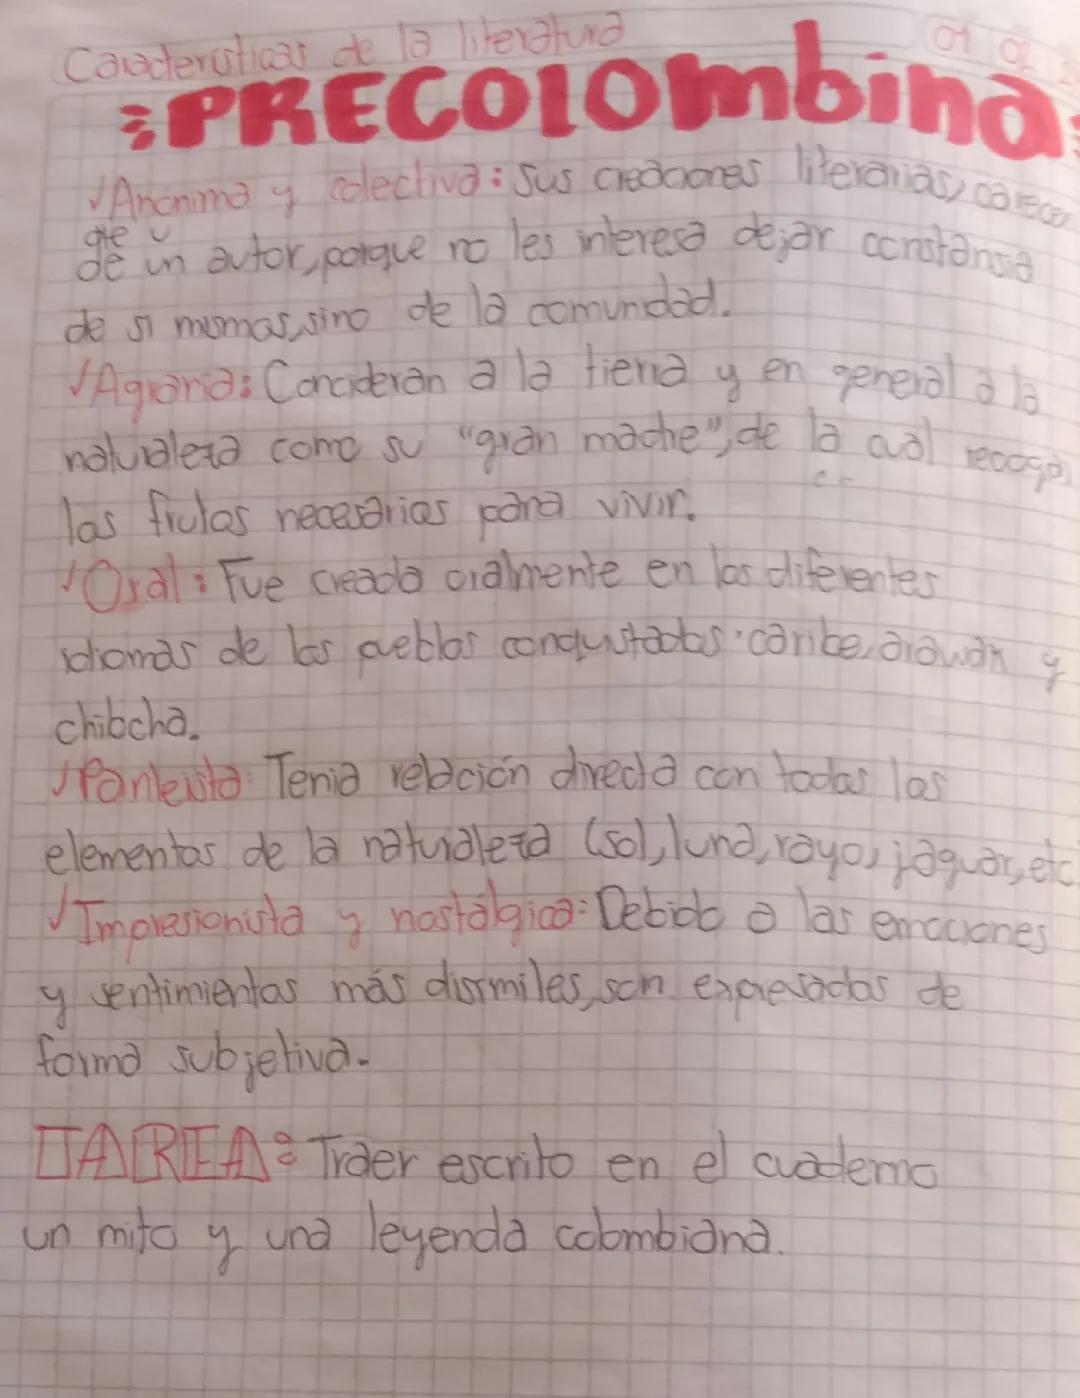 Características de la literatura
01 02
PRECOlOmbina
√Anónima y colectiva: Sus creaciones literarias, carecen
de un autor, porque no les interesa dejar constansia
de si mismas, sino de la comunidad.
√Agraria: Concideran a la tierra y en general a la
naturaleza como su "gran madre", de la cual recoge
los frutos necesarios para vivir.
√Oral: Fue creada oralmente en los diferentes
idiomas de los pueblos conquistados: caribe, arawak y
chibcha.
√Panteista: Tenia relación directa con todos los
elementos de la naturaleza (sol, luna, rayo, jaguar, etc.
√Impresionista y nostálgica: Debido a las emociones
y sentimientos más disimiles, son expresados de
forma subjetiva.
TAREA: Traer escrito en el cuaderno
un mito y una leyenda colombiana.